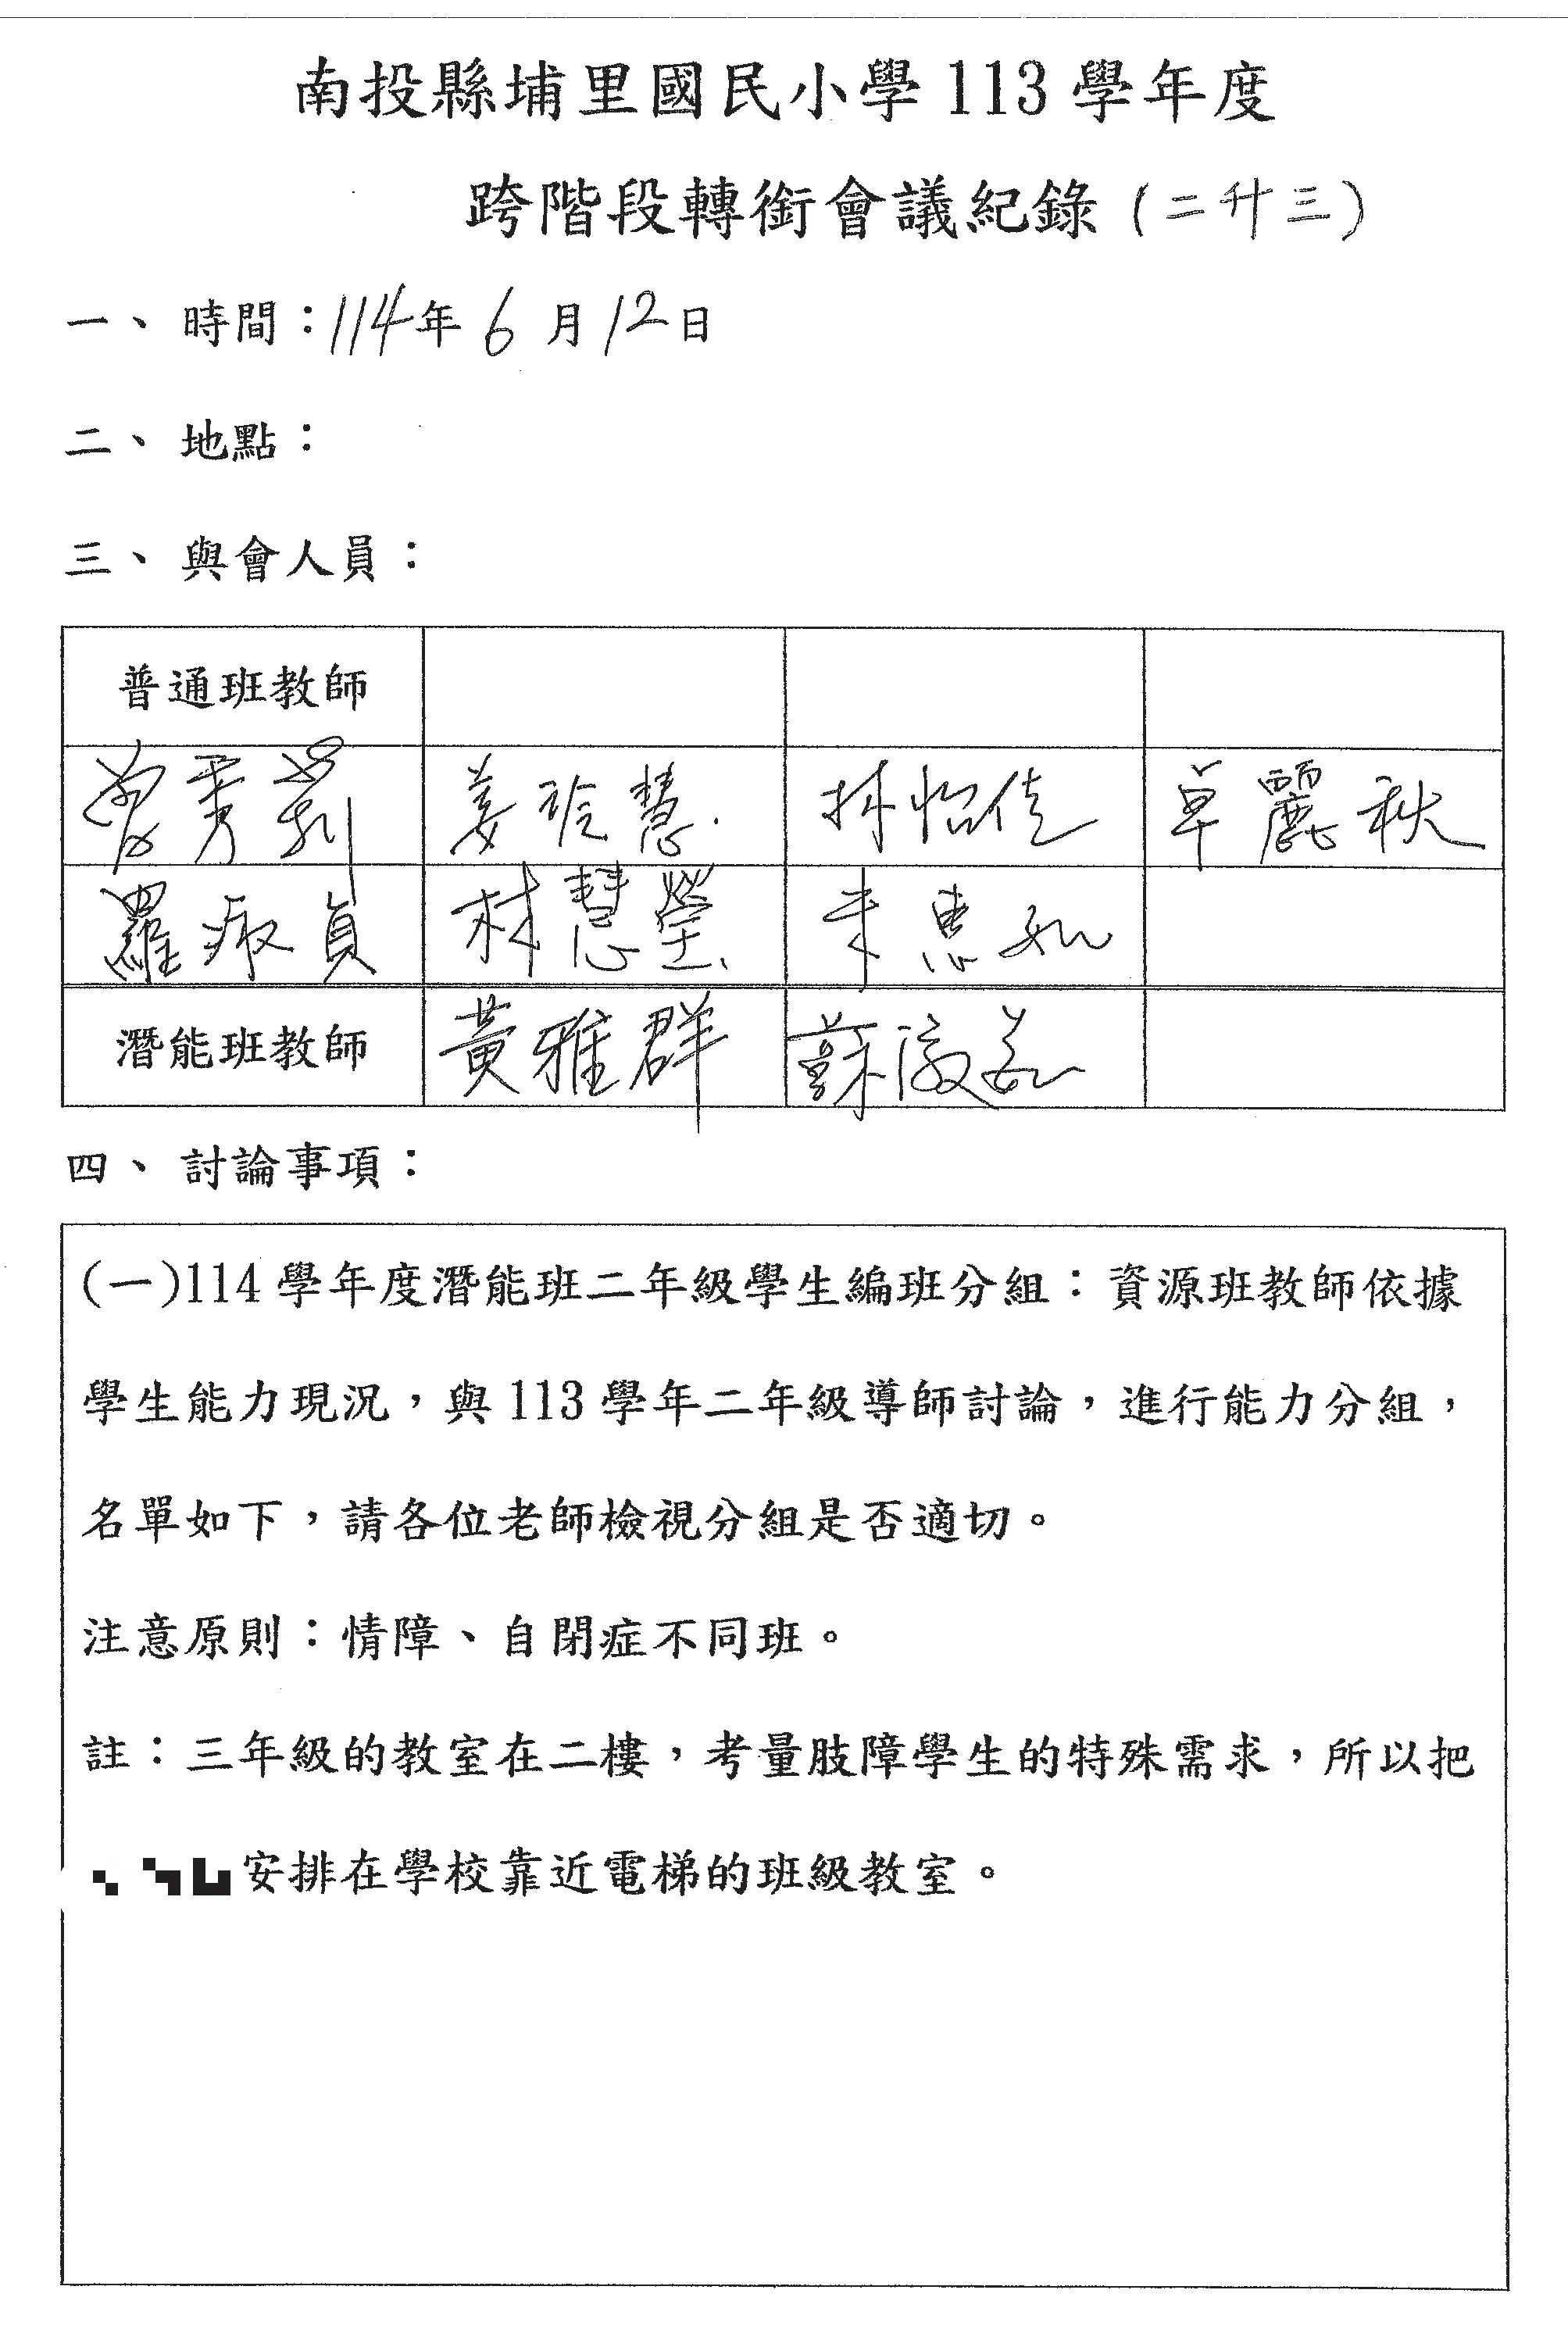 南投縣埔里國民小學 113 學年度
跨階段轉銜會議紀錄(二升三)
一、 時間：114年 6 月 12日
二、 地點：
三、 與會人員：
普通班教師
曾秀莉 姜玲慧 林怡佳 卓麗秋
羅淑貞 林慧瑩 朱惠如
潛能班教師 黃雅群 蘇
四、 討論事項：
(一)114 學年度潛能班二年級學生編班分組：資源班教師依據
學生能力現況，與 113 學年二年級導師討論，進行能力分組，
名單如下，請各位老師檢視分組是否適切。
注意原則：情障、自閉症不同班。
註：三年級的教室在二樓，考量肢障學生的特殊需求，所以把
安排在學校靠近電梯的班級教室。